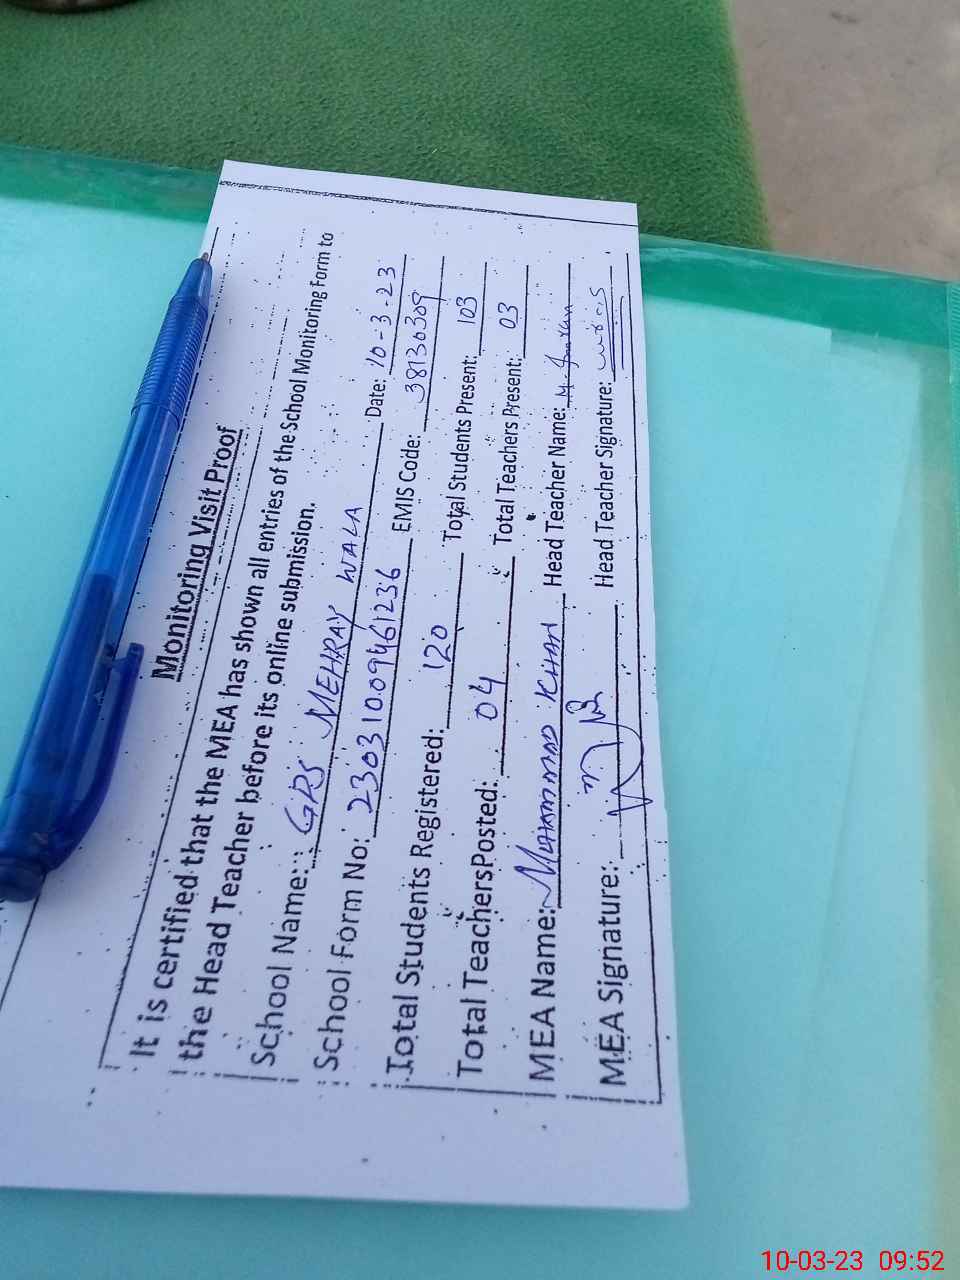 Monitoring Visit Proof
It is certified that the MEA has shown all entries of the School Monitoring Form to
the Head Teacher before its online submission.
School Name: GPS MEHRAY WALA Date: 10-3-23
School Form No: 23031009461236 EMIS Code: 38130309
Total Students Registered: 120 Total Students Present: 103
Total Teachers Posted: 04 Total Teachers Present: 03
MEA Name: MUHAMMAD KHAN Head Teacher Name: M.
MEA Signature: Head Teacher Signature:
10-03-23 09:52